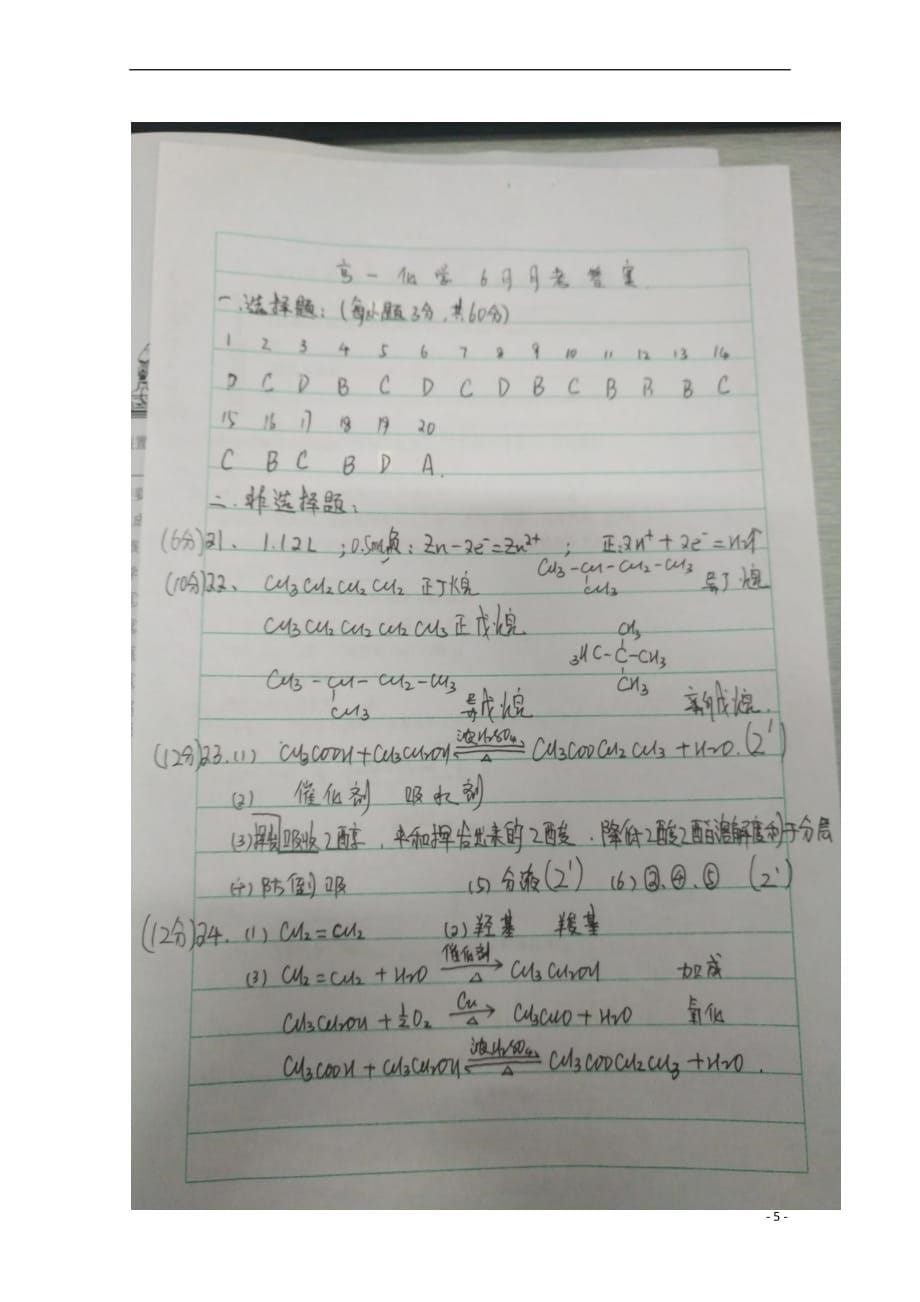 高一化学6月月考答案
一.选择题:(每小题3分,共60分)
1 2 3 4 5 6 7 8 9 10 11 12 13 14
D C D B C D C D B C B B B C
15 16 17 18 19 20
C B C B D A.
二.非选择题:
(6分)21、 1.12L ; 0.5mol 负: Zn-2e⁻=Zn²⁺ ; 正:2H⁺+2e⁻=H₂↑
(10分)22、 CH3CH2CH2CH2 正丁烷 CH3-CH-CH2-CH3 异丁烷
CH3
CH3CH2CH2CH2CH3正戊烷
CH3
3HC-C-CH3
CH3
CH3-CH-CH2-CH3
CH3 异戊烷 新戊烷.
(12分)23.(1) CH3COOH+CH3CH2OH 浓H2SO4 △ CH3COOCH2CH3+H2O.(2')
(2) 催化剂 吸水剂
(3) 吸收乙醇,中和挥发出来的乙酸.降低乙酸乙酯溶解度利于分层
(4)防倒吸 (5)分液(2') (6)②.④.⑤ (2')
(12分)24.(1) CH2=CH2 (2)羟基 羧基
(3) CH2=CH2+H2O 催化剂 △ → CH3CH2OH 加成
CH3CH2OH+½O2 Cu △ → CH3CHO+H2O 氧化
CH3COOH+CH3CH2OH 浓H2SO4 △ CH3COOCH2CH3+H2O.
- 5 -